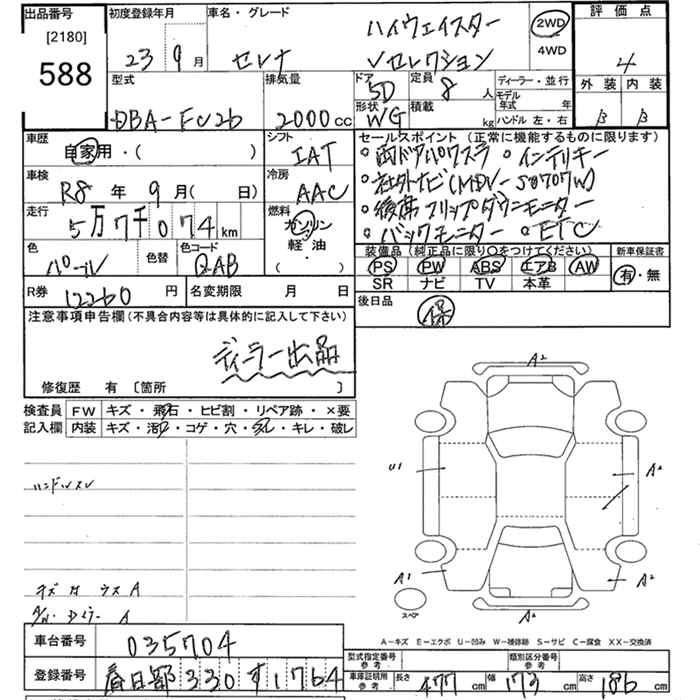 出品番号 初度登録年月 車名・グレード 評価点
[2180]
588
23 9月 セレナ ハイウェイスター
Vセレクション
2WD
4WD
4
外装 内装
B B
型式 排気量 ドア 5D 定員 8人 ディーラー・並行
DBA-FC26 2000cc 形状 WG 積載 kg モデル年式 年
ハンドル 左・右
車歴 シフト セールスポイント(正常に機能するものに限ります)
自家用・( ) IAT
。両ドアパワスラ 。インテリキー
車検 冷房
R8年9月(日) AAC
。社外ナビ(MDV-S8707W)
走行 燃料
5万7千074km ガソリン
軽・油
( )
。後席フリップダウンモニター
。バックモニター 。ETC
色 色替 色コード
パープル GAB
装備品(純正品に限り○をつけてください) 新車保証書
PS PW ABS エアB AW
SR ナビ TV 本革
有・無
R券 12260円 名変期限 月 日
後日品 保
注意事項申告欄(不具合内容等は具体的に記入して下さい)
ディーラー出品
修復歴 有 〔箇所 〕
検査員 FW キズ・飛石・ヒビ割・リペア跡・×要
記入欄 内装 キズ・汚レ・コゲ・穴・スレ・キレ・破レ
ハンドルスレ
A2
U1 A2
A2
A1 A2
A2
スペア
A-キズ E-エクボ U-凹み W-補修跡 S-サビ C-腐食 XX-交換済
車台番号 035704
登録番号 春日部 330 す 1764
型式指定番号 参考 類別区分番号 参考
車庫証明用 参考 長さ 477cm 幅 173cm 高さ 186cm